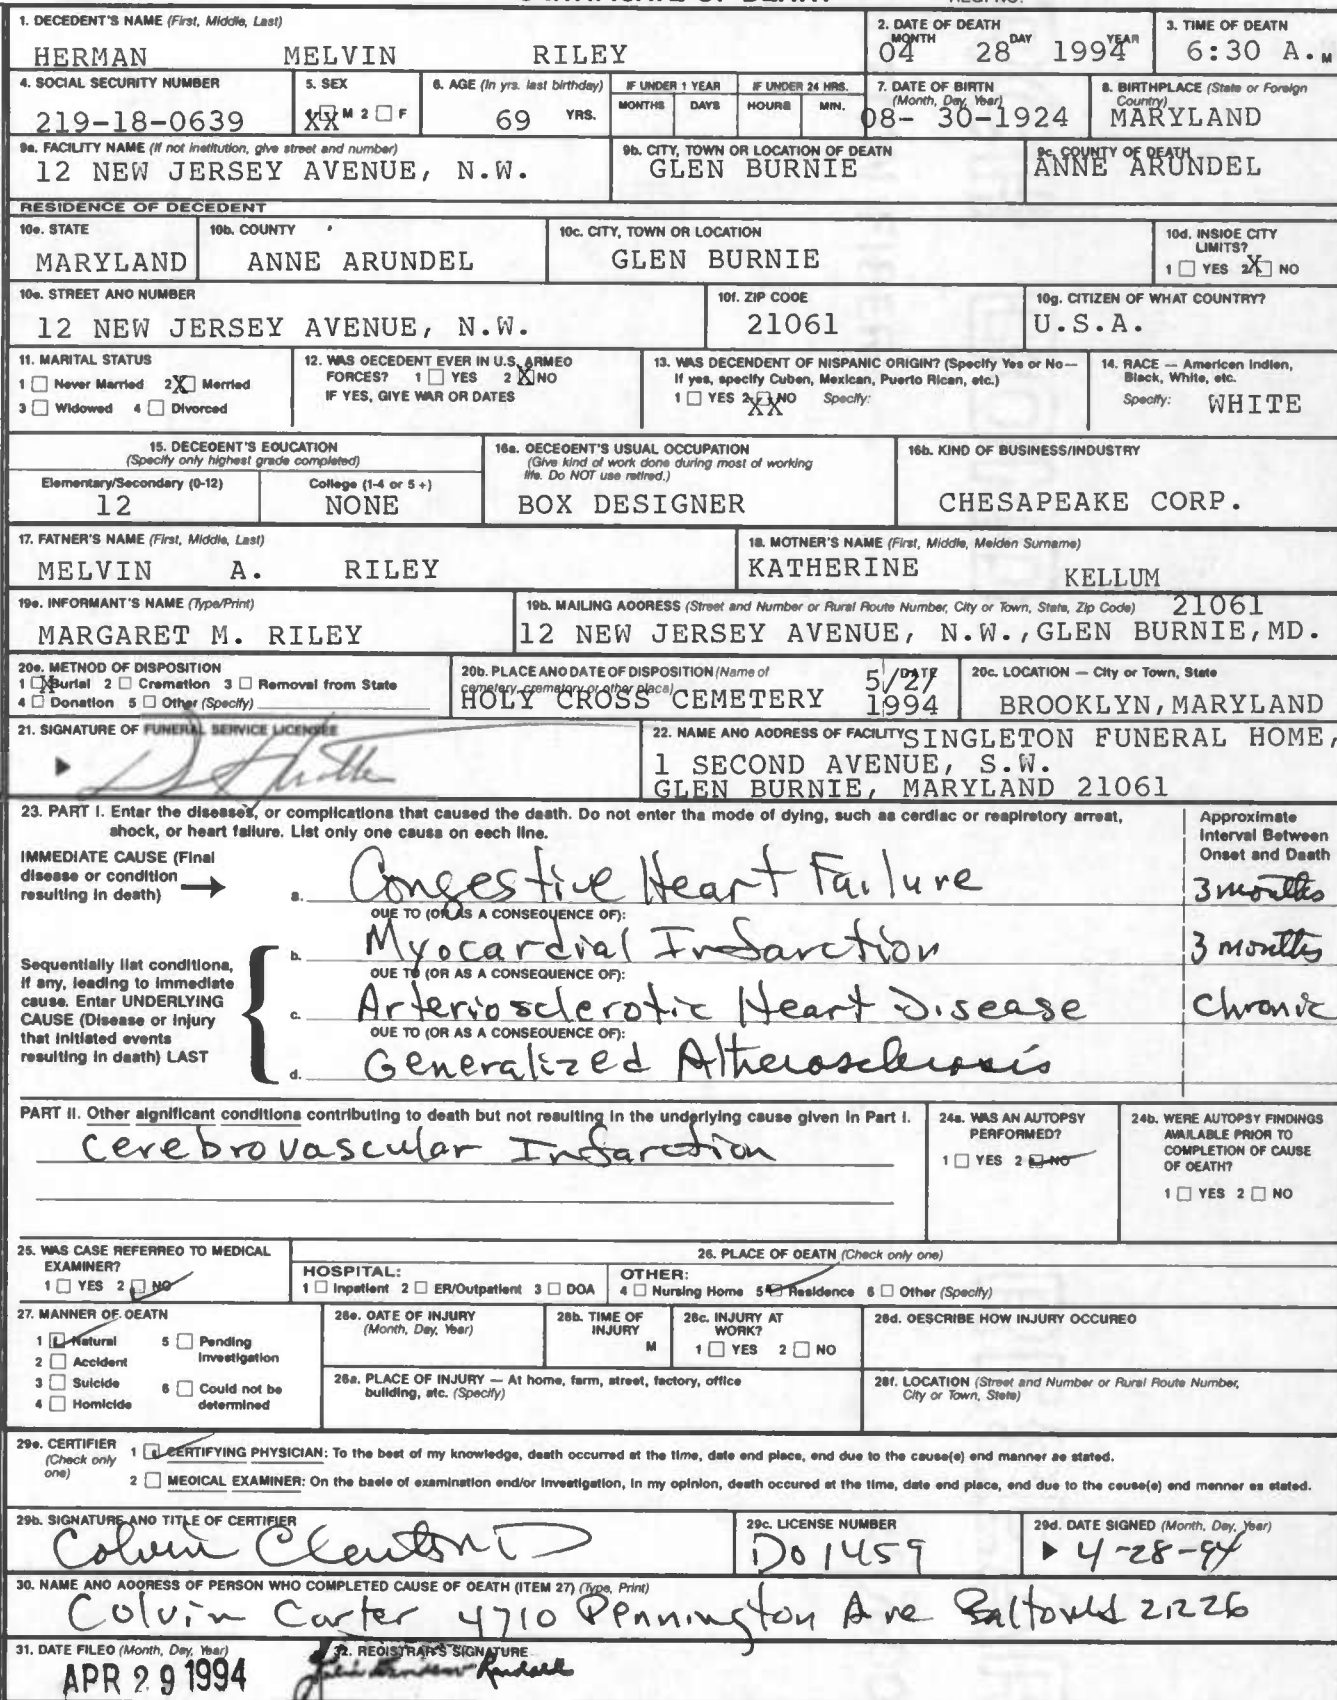 1. DECEDENT'S NAME (First, Middle, Last)
HERMAN MELVIN RILEY
2. DATE OF DEATH
MONTH DAY YEAR
04 28 1994
3. TIME OF DEATH
6:30 A. M
4. SOCIAL SECURITY NUMBER
219-18-0639
5. SEX
1 XX M 2 ☐ F
6. AGE (In yrs. last birthday)
69 YRS.
IF UNDER 1 YEAR
MONTHS DAYS
IF UNDER 24 HRS.
HOURS MIN.
7. DATE OF BIRTH
(Month, Day, Year)
08- 30-1924
8. BIRTHPLACE (State or Foreign
Country)
MARYLAND
9a. FACILITY NAME (If not institution, give street and number)
12 NEW JERSEY AVENUE, N.W.
9b. CITY, TOWN OR LOCATION OF DEATH
GLEN BURNIE
9c. COUNTY OF DEATH
ANNE ARUNDEL
RESIDENCE OF DECEDENT
10a. STATE
MARYLAND
10b. COUNTY
ANNE ARUNDEL
10c. CITY, TOWN OR LOCATION
GLEN BURNIE
10d. INSIDE CITY
LIMITS?
1 ☐ YES 2 X NO
10e. STREET AND NUMBER
12 NEW JERSEY AVENUE, N.W.
10f. ZIP CODE
21061
10g. CITIZEN OF WHAT COUNTRY?
U.S.A.
11. MARITAL STATUS
1 ☐ Never Married 2 X Married
3 ☐ Widowed 4 ☐ Divorced
12. WAS DECEDENT EVER IN U.S. ARMED
FORCES? 1 ☐ YES 2 X NO
IF YES, GIVE WAR OR DATES
13. WAS DECENDENT OF HISPANIC ORIGIN? (Specify Yes or No—
If yes, specify Cuban, Mexican, Puerto Rican, etc.)
1 ☐ YES 2 XX NO Specify:
14. RACE — American Indian,
Black, White, etc.
Specify: WHITE
15. DECEDENT'S EDUCATION
(Specify only highest grade completed)
Elementary/Secondary (0-12)
12
College (1-4 or 5 +)
NONE
16a. DECEDENT'S USUAL OCCUPATION
(Give kind of work done during most of working
life. Do NOT use retired.)
BOX DESIGNER
16b. KIND OF BUSINESS/INDUSTRY
CHESAPEAKE CORP.
17. FATHER'S NAME (First, Middle, Last)
MELVIN A. RILEY
18. MOTHER'S NAME (First, Middle, Maiden Surname)
KATHERINE KELLUM
19a. INFORMANT'S NAME (Type/Print)
MARGARET M. RILEY
19b. MAILING ADDRESS (Street and Number or Rural Route Number, City or Town, State, Zip Code) 21061
12 NEW JERSEY AVENUE, N.W.,GLEN BURNIE,MD.
20a. METHOD OF DISPOSITION
1 X Burial 2 ☐ Cremation 3 ☐ Removal from State
4 ☐ Donation 5 ☐ Other (Specify)
20b. PLACE AND DATE OF DISPOSITION (Name of
cemetery, crematory or other place)
HOLY CROSS CEMETERY
DATE
5/2/
1994
20c. LOCATION — City or Town, State
BROOKLYN,MARYLAND
21. SIGNATURE OF FUNERAL SERVICE LICENSEE
22. NAME AND ADDRESS OF FACILITY SINGLETON FUNERAL HOME,
1 SECOND AVENUE, S.W.
GLEN BURNIE, MARYLAND 21061
23. PART I. Enter the diseases, or complications that caused the death. Do not enter the mode of dying, such as cardiac or respiratory arrest,
shock, or heart failure. List only one cause on each line.
Approximate
Interval Between
Onset and Death
IMMEDIATE CAUSE (Final
disease or condition
resulting in death)
a. Congestive Heart Failure 3 months
DUE TO (OR AS A CONSEQUENCE OF):
b. Myocardial Infarction 3 months
DUE TO (OR AS A CONSEQUENCE OF):
Sequentially list conditions,
if any, leading to immediate
cause. Enter UNDERLYING
CAUSE (Disease or injury
that initiated events
resulting in death) LAST
c. Arteriosclerotic Heart Disease Chronic
DUE TO (OR AS A CONSEQUENCE OF):
d. Generalized Altherosclerosis
PART II. Other significant conditions contributing to death but not resulting in the underlying cause given in Part I.
Cerebrovascular Infarction
24a. WAS AN AUTOPSY
PERFORMED?
1 ☐ YES 2 ☑ NO
24b. WERE AUTOPSY FINDINGS
AVAILABLE PRIOR TO
COMPLETION OF CAUSE
OF DEATH?
1 ☐ YES 2 ☐ NO
25. WAS CASE REFERRED TO MEDICAL
EXAMINER?
1 ☐ YES 2 ☑ NO
26. PLACE OF DEATH (Check only one)
HOSPITAL:
1 ☐ Inpatient 2 ☐ ER/Outpatient 3 ☐ DOA
OTHER:
4 ☐ Nursing Home 5 ☑ Residence 6 ☐ Other (Specify)
27. MANNER OF DEATH
1 ☑ Natural 5 ☐ Pending
Investigation
2 ☐ Accident
3 ☐ Suicide 6 ☐ Could not be
determined
4 ☐ Homicide
28a. DATE OF INJURY
(Month, Day, Year)
28b. TIME OF
INJURY
M
28c. INJURY AT
WORK?
1 ☐ YES 2 ☐ NO
28d. DESCRIBE HOW INJURY OCCURED
28e. PLACE OF INJURY — At home, farm, street, factory, office
building, etc. (Specify)
28f. LOCATION (Street and Number or Rural Route Number,
City or Town, State)
29a. CERTIFIER
(Check only
one)
1 ☑ CERTIFYING PHYSICIAN: To the best of my knowledge, death occurred at the time, date and place, and due to the cause(s) and manner as stated.
2 ☐ MEDICAL EXAMINER: On the basis of examination and/or investigation, in my opinion, death occured at the time, date and place, and due to the cause(s) and manner as stated.
29b. SIGNATURE AND TITLE OF CERTIFIER
Colvin
29c. LICENSE NUMBER
D01459
29d. DATE SIGNED (Month, Day, Year)
4-28-94
30. NAME AND ADDRESS OF PERSON WHO COMPLETED CAUSE OF DEATH (ITEM 27) (Type, Print)
Colvin Carter 4710 Pennington Ave Balto Md 21226
31. DATE FILED (Month, Day, Year)
APR 29 1994
32. REGISTRAR'S SIGNATURE